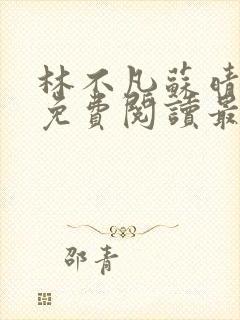 林不凡蘇晴
免費閱讀最
邵青